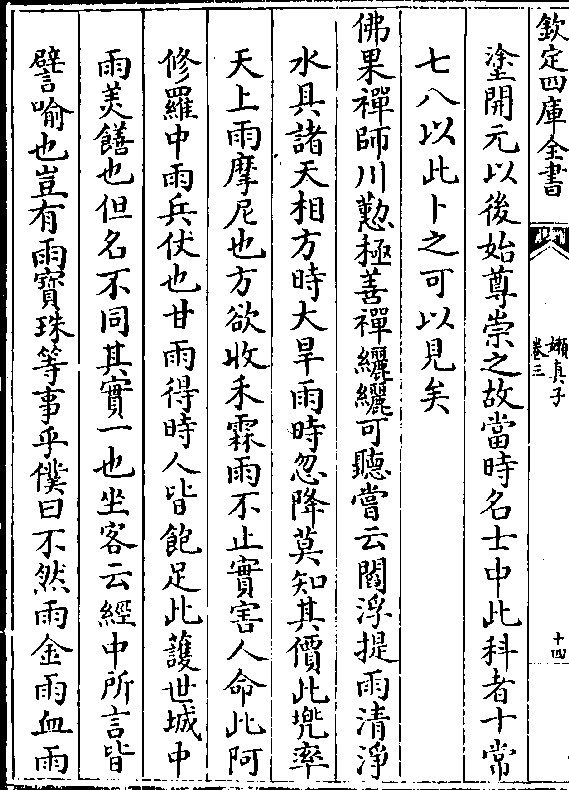 欽定四庫全書
嬾真子
卷三
十四
塗開元以後始尊崇之故當時名士中此科者十常
七八以此卜之可以見矣
佛果禪師川懃極善禪纚纚可聽嘗云閻浮提雨清淨
水具諸天相方時大旱雨時忽降莫知其價此兠率
天上雨摩尼也方欲收禾霖雨不止實害人命此阿
修羅中雨兵仗也甘雨得時人皆飽足此護世城中
雨美饍也但名不同其實一也坐客云經中所言皆
譬喻也豈有雨寳珠等事乎僕曰不然雨金雨血雨